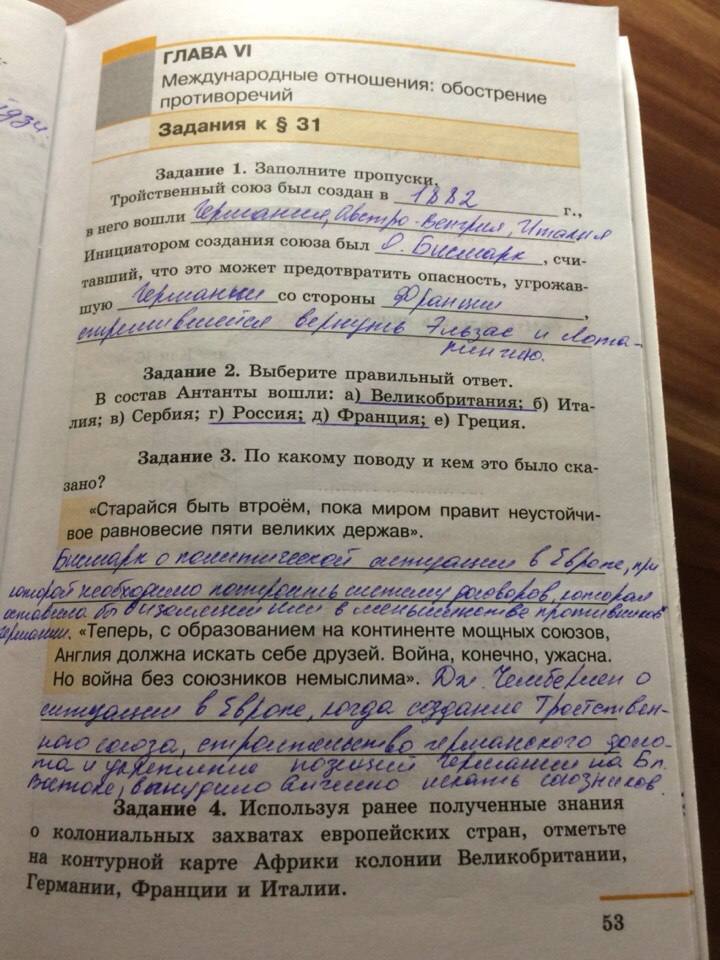 ГЛАВА VI
Международные отношения: обострение
противоречий
Задания к § 31
1934.
Задание 1. Заполните пропуски.
Тройственный союз был создан в 1882 г.,
в него вошли Германия, Австро-Венгрия, Италия
Инициатором создания союза был О. Бисмарк, счи-
тавший, что это может предотвратить опасность, угрожав-
шую Германии со стороны Франции,
стремившейся вернуть Эльзас и Лота-
рингию.
Задание 2. Выберите правильный ответ.
В состав Антанты вошли: а) Великобритания; б) Ита-
лия; в) Сербия; г) Россия; д) Франция; е) Греция.
Задание 3. По какому поводу и кем это было ска-
зано?
«Старайся быть втроём, пока миром правит неустойчи-
вое равновесие пяти великих держав».
Бисмарк о политической ситуации в Европе, при
которой необходимо построить систему договоров, которая
оставила бы в изоляции или в меньшинстве противников
Германии. «Теперь, с образованием на континенте мощных союзов,
Англия должна искать себе друзей. Война, конечно, ужасна.
Но война без союзников немыслима». Дж. Чемберлен о
ситуации в Европе, когда создание Тройствен-
ного союза, строительство германского фло-
та и укрепление позиций Германии на Бл.
Востоке, вынудило Англию искать союзников.
Задание 4. Используя ранее полученные знания
о колониальных захватах европейских стран, отметьте
на контурной карте Африки колонии Великобритании,
Германии, Франции и Италии.
53